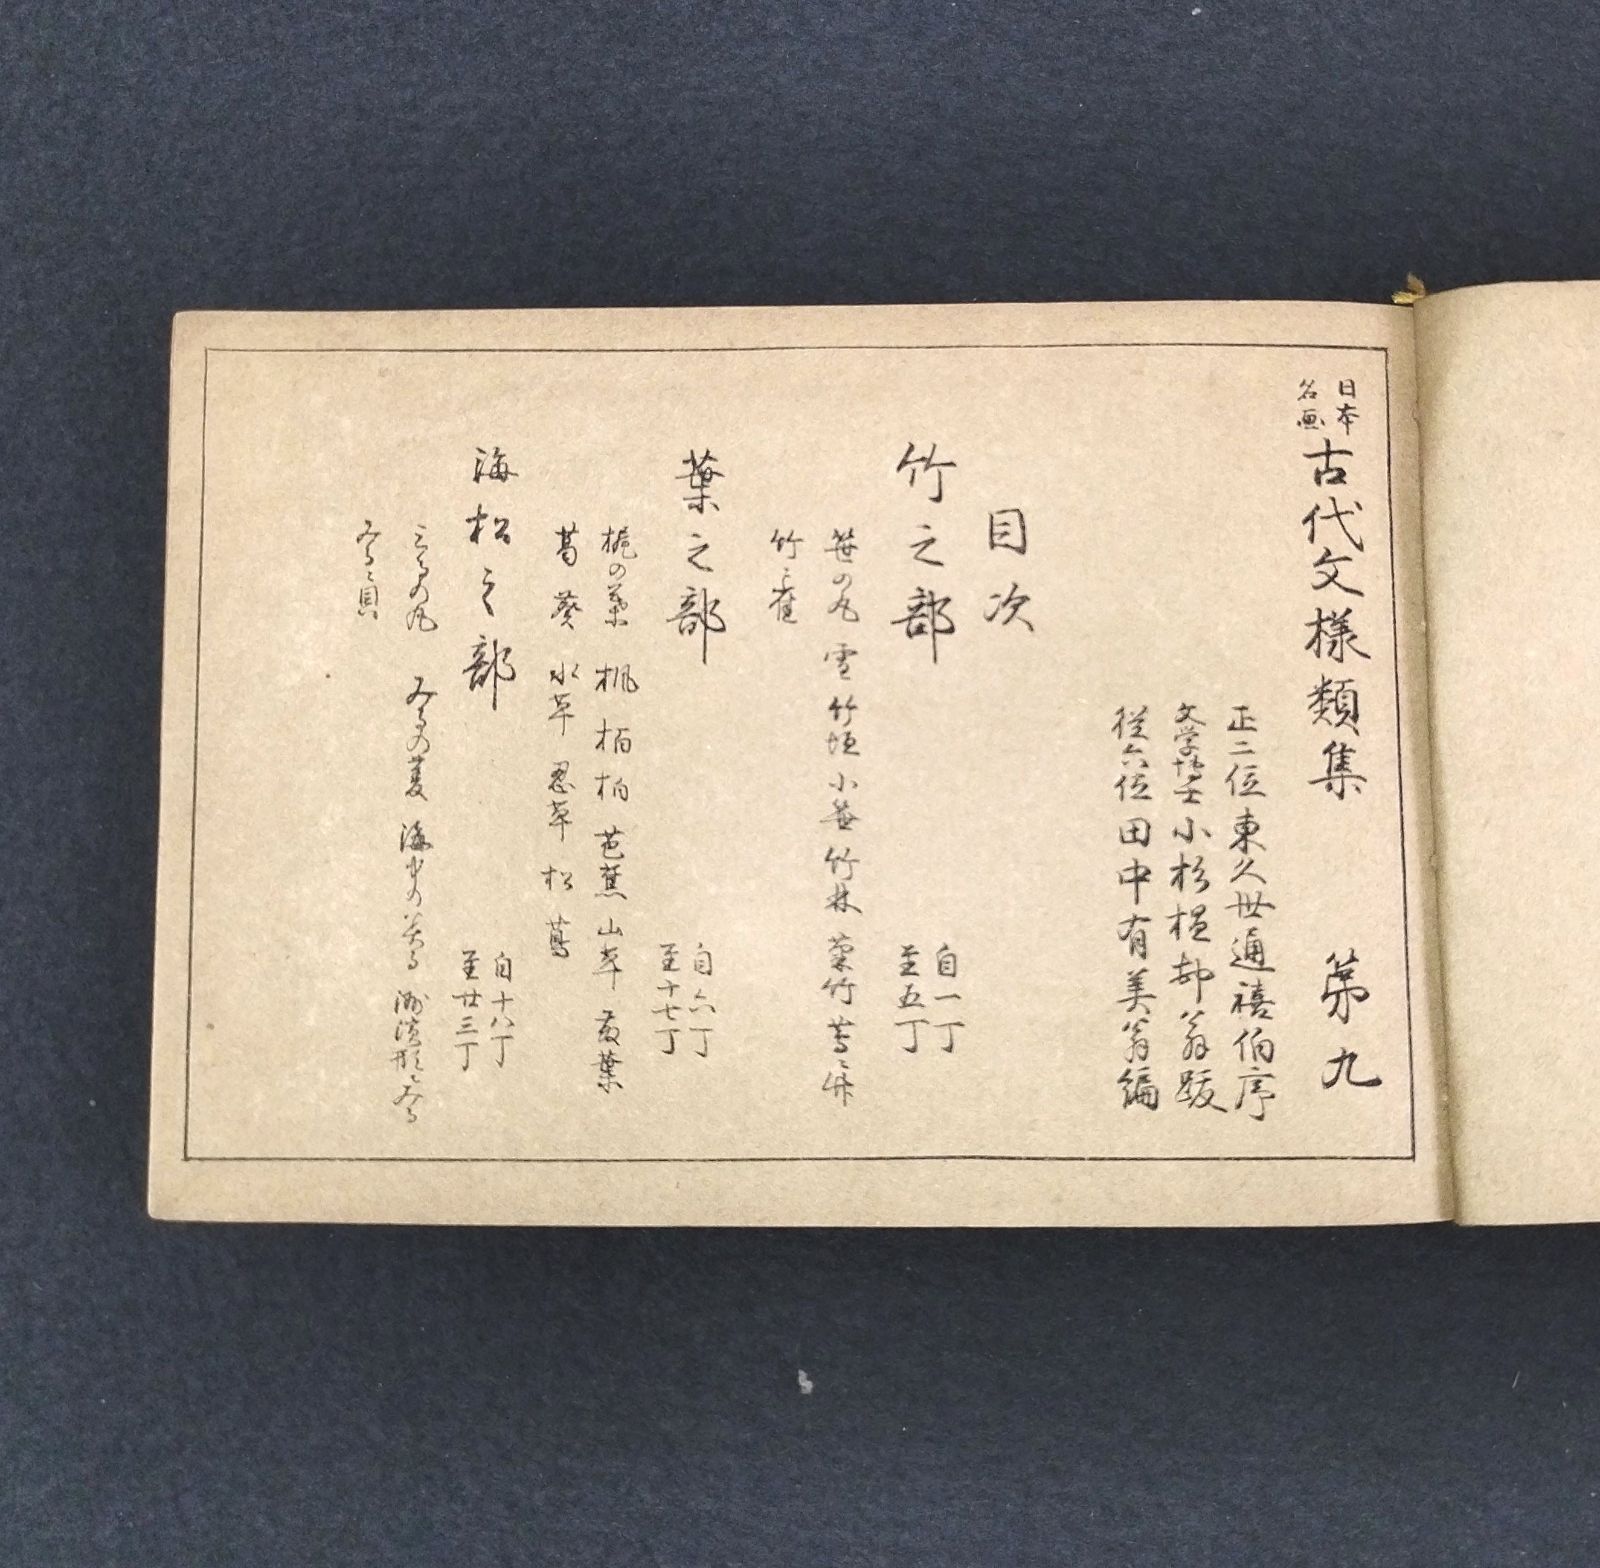 日本
名画
古代文様類集 第九
正二位東久世通禧伯序
文学博士小杉榲邨翁跋
従六位田中有美翁編
目次
竹之部
自一丁
至五丁
笹の丸 雪 竹垣 小笹 竹林 葉竹
竹ニ雀
葉之部
自六丁
至十七丁
梶の葉 楓 栢 柏 芭蕉 山草
葛 葵 水草 忍草 松 蔦
海松之部
自十八丁
至廿三丁
みるの丸 みるの菱 海中の 洲濱形ニみる
みるニ貝